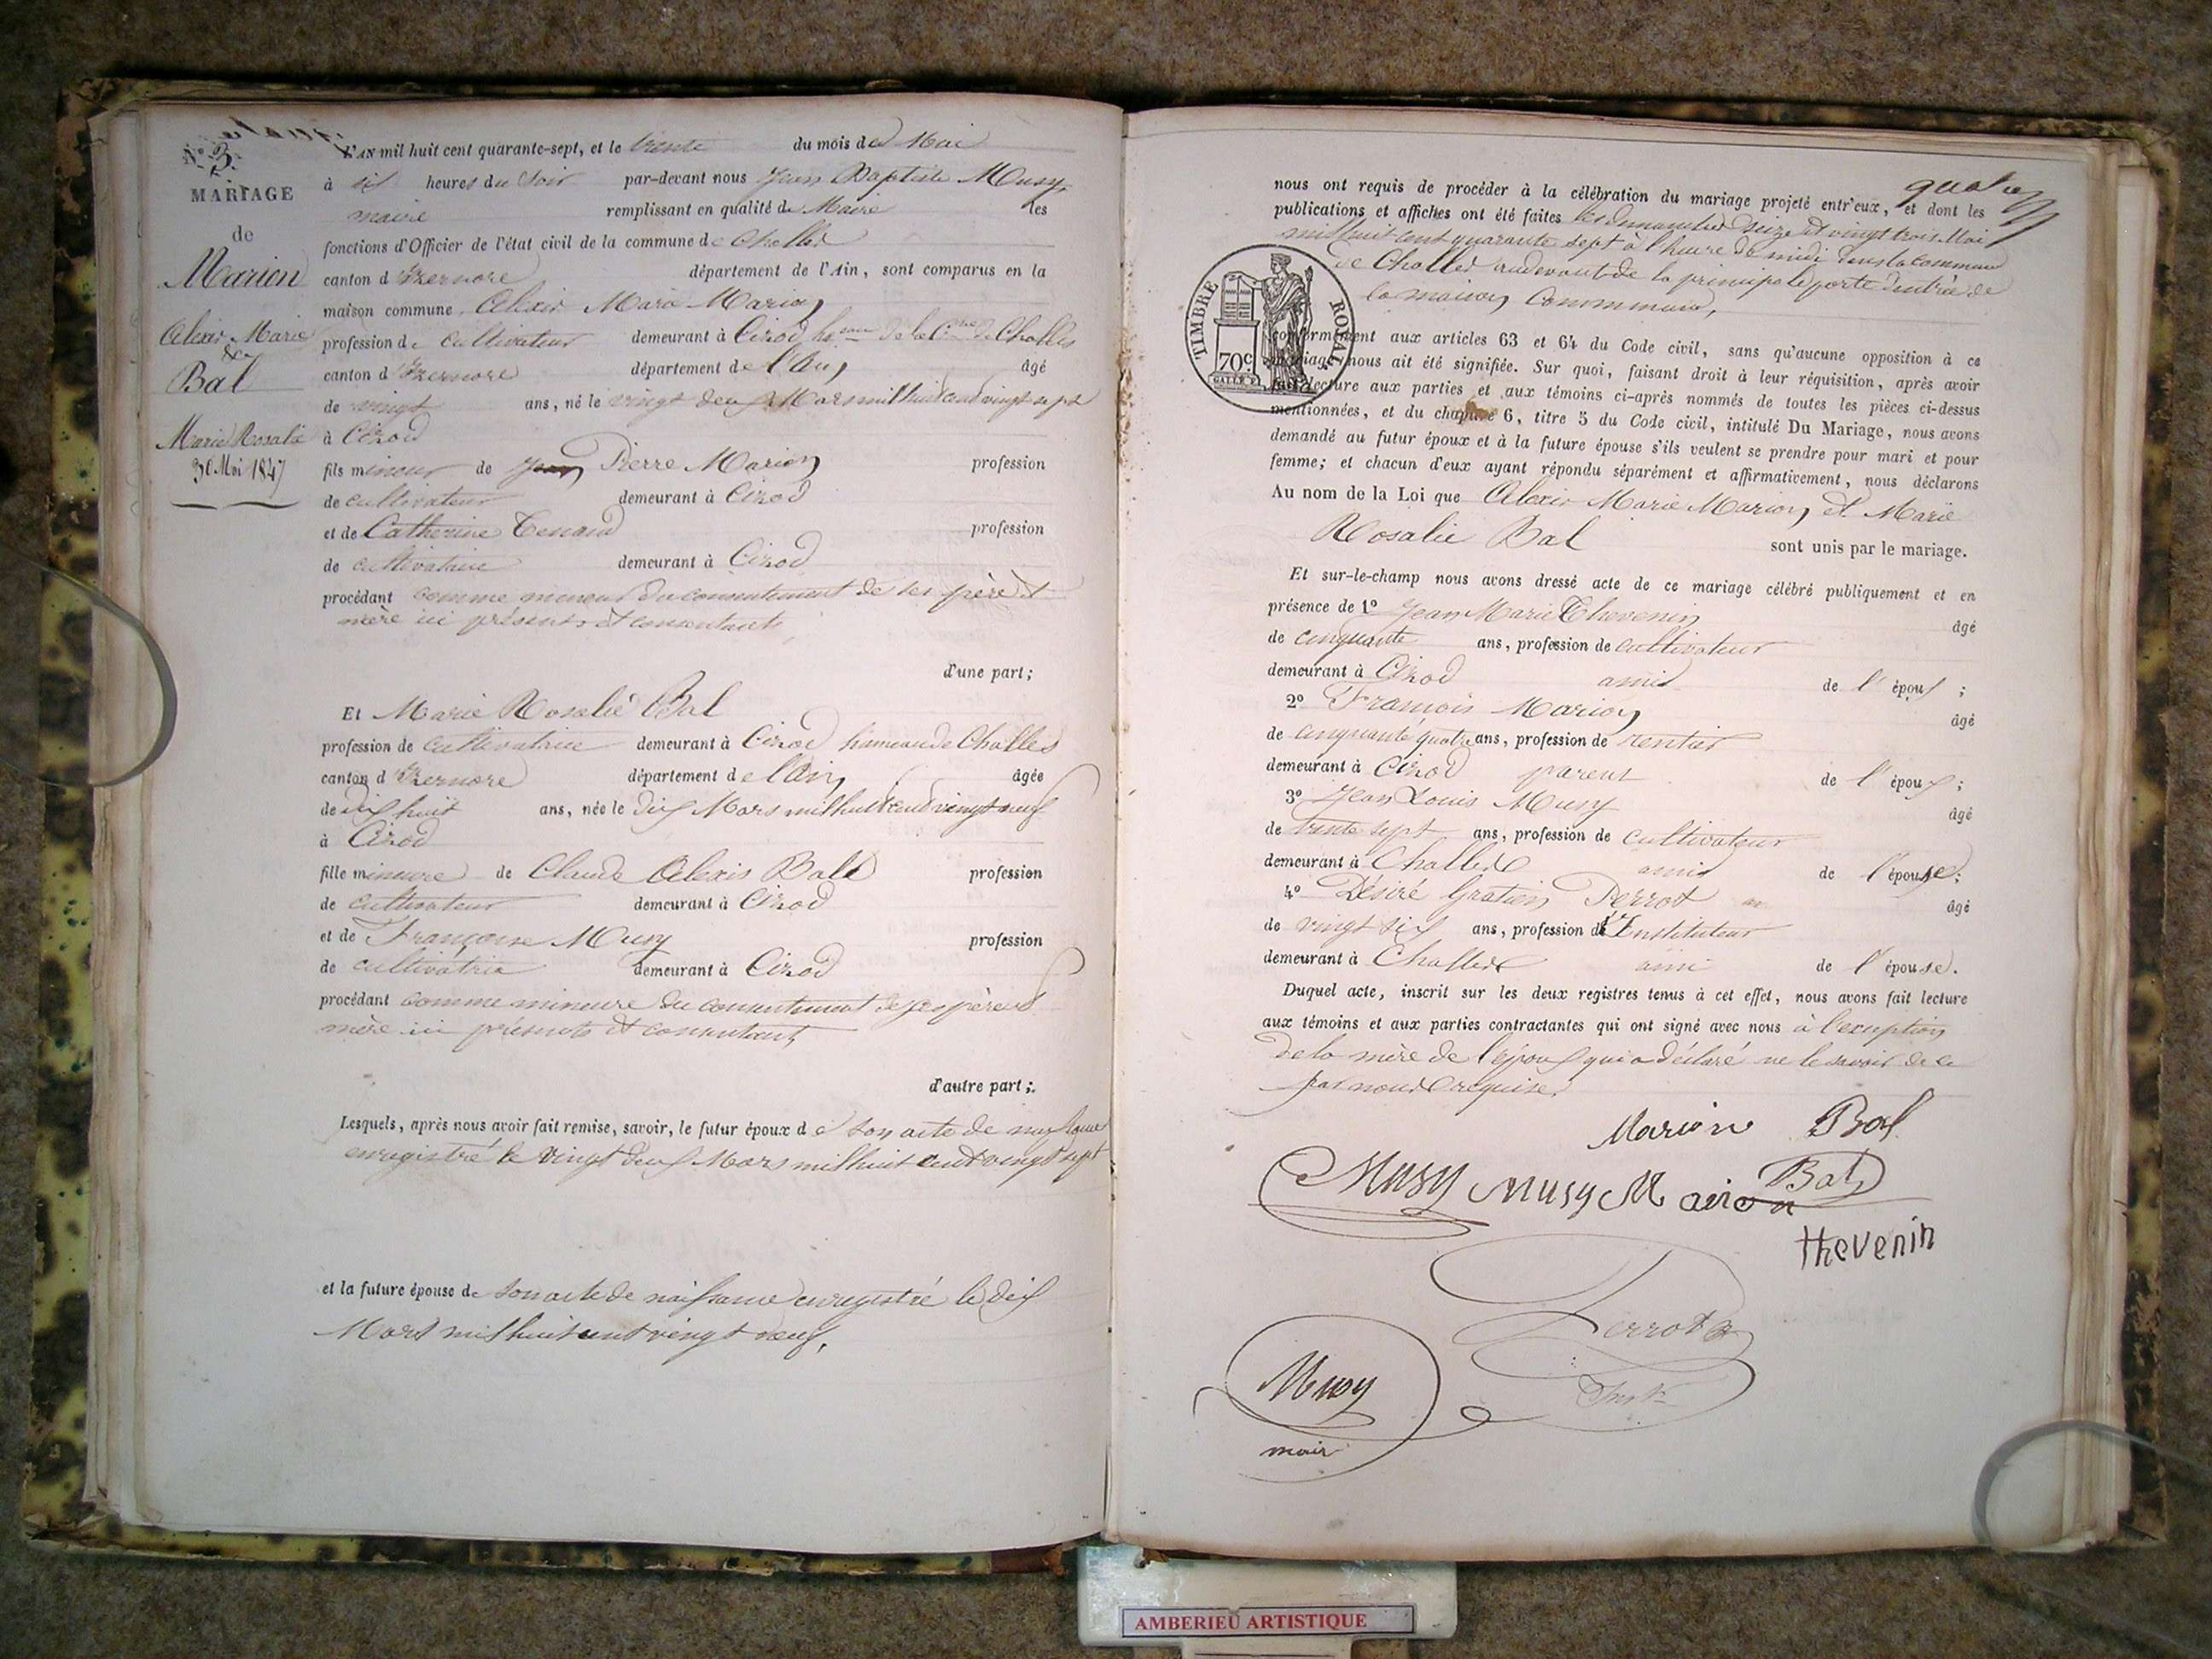 N.° 3.
MARIAGE
de
Marion
Alexis Marie
&
Bal
Marie Rosalie
30 Mai 1847
L'AN mil huit cent quarante-sept, et le trente du mois de Mai
à six heures du Soir par-devant nous Jean Baptiste Musy,
maire remplissant en qualité de Maire les
fonctions d'Officier de l'état civil de la commune de Challes
canton d'Izernore département de l'Ain, sont comparus en la
maison commune Alexis Marie Marion
profession de cultivateur demeurant à Cizod de la Cne de Challes
canton d'Izernore département de l'Ain âgé
de vingt ans, né le vingt deux Mars mil huit cent vingt sept
à Cizod
fils mineur de Jean Pierre Marion profession
de cultivateur demeurant à Cizod
et de Catherine Tenand profession
de cultivatrice demeurant à Cizod
procédant comme mineur du consentement de ses père et
mère ici présents et consentants,
d'une part;
Et Marie Rosalie Bal
profession de cultivatrice demeurant à Cizod hameau de Challes
canton d'Izernore département de l'Ain âgée
de dix huit ans, née le dix Mars mil huit cent vingt neuf
à Cizod
fille mineure de Claude Alexis Bal profession
de cultivateur demeurant à Cizod
et de Françoise Musy profession
de cultivatrice demeurant à Cizod
procédant comme mineure du consentement de ses père et
mère ici présents et consentant,
d'autre part;
Lesquels, après nous avoir fait remise, savoir, le futur époux de son acte de
enregistré le vingt deux Mars mil huit cent vingt sept
et la future épouse de son acte de naissance enregistré le dix
Mars mil huit cent vingt neuf.
quatre
nous ont requis de procéder à la célébration du mariage projeté entr'eux, et dont les
publications et affiches ont été faites les dimanches seize et vingt trois Mai
mil huit cent quarante sept à l'heure de midi dans la commune
de Challes audevant de la principale porte d'entrée de
la maison Commune,
TIMBRE ROYAL
70c
conformément aux articles 63 et 64 du Code civil, sans qu'aucune opposition à ce
mariage nous ait été signifiée. Sur quoi, faisant droit à leur réquisition, après avoir
fait lecture aux parties et aux témoins ci-après nommés de toutes les pièces ci-dessus
mentionnées, et du chapitre 6, titre 5 du Code civil, intitulé Du Mariage, nous avons
demandé au futur époux et à la future épouse s'ils veulent se prendre pour mari et pour
femme; et chacun d'eux ayant répondu séparément et affirmativement, nous déclarons
Au nom de la Loi que Alexis Marie Marion et Marie
Rosalie Bal sont unis par le mariage.
Et sur-le-champ nous avons dressé acte de ce mariage célébré publiquement et en
présence de 1° Jean Marie Thevenin âgé
de cinquante ans, profession de cultivateur
demeurant à Cizod ami de l'époux;
2° François Marion âgé
de cinquante quatre ans, profession de rentier
demeurant à Cizod parent de l'époux;
3° Jean Louis Musy âgé
de trente sept ans, profession de cultivateur
demeurant à Challes ami de l'épouse;
4° Désiré Gratien Perrot âgé
de vingt six ans, profession d'Instituteur
demeurant à Challes ami de l'épouse.
Duquel acte, inscrit sur les deux registres tenus à cet effet, nous avons fait lecture
aux témoins et aux parties contractantes qui ont signé avec nous à l'exception
de la mère de l'époux qui a déclaré ne le savoir de ce
par nous requise.
Marion Bal
Musy Musy Marion Bal
thevenin
Perrot
Inst
Musy
mair
AMBERIEU ARTISTIQUE